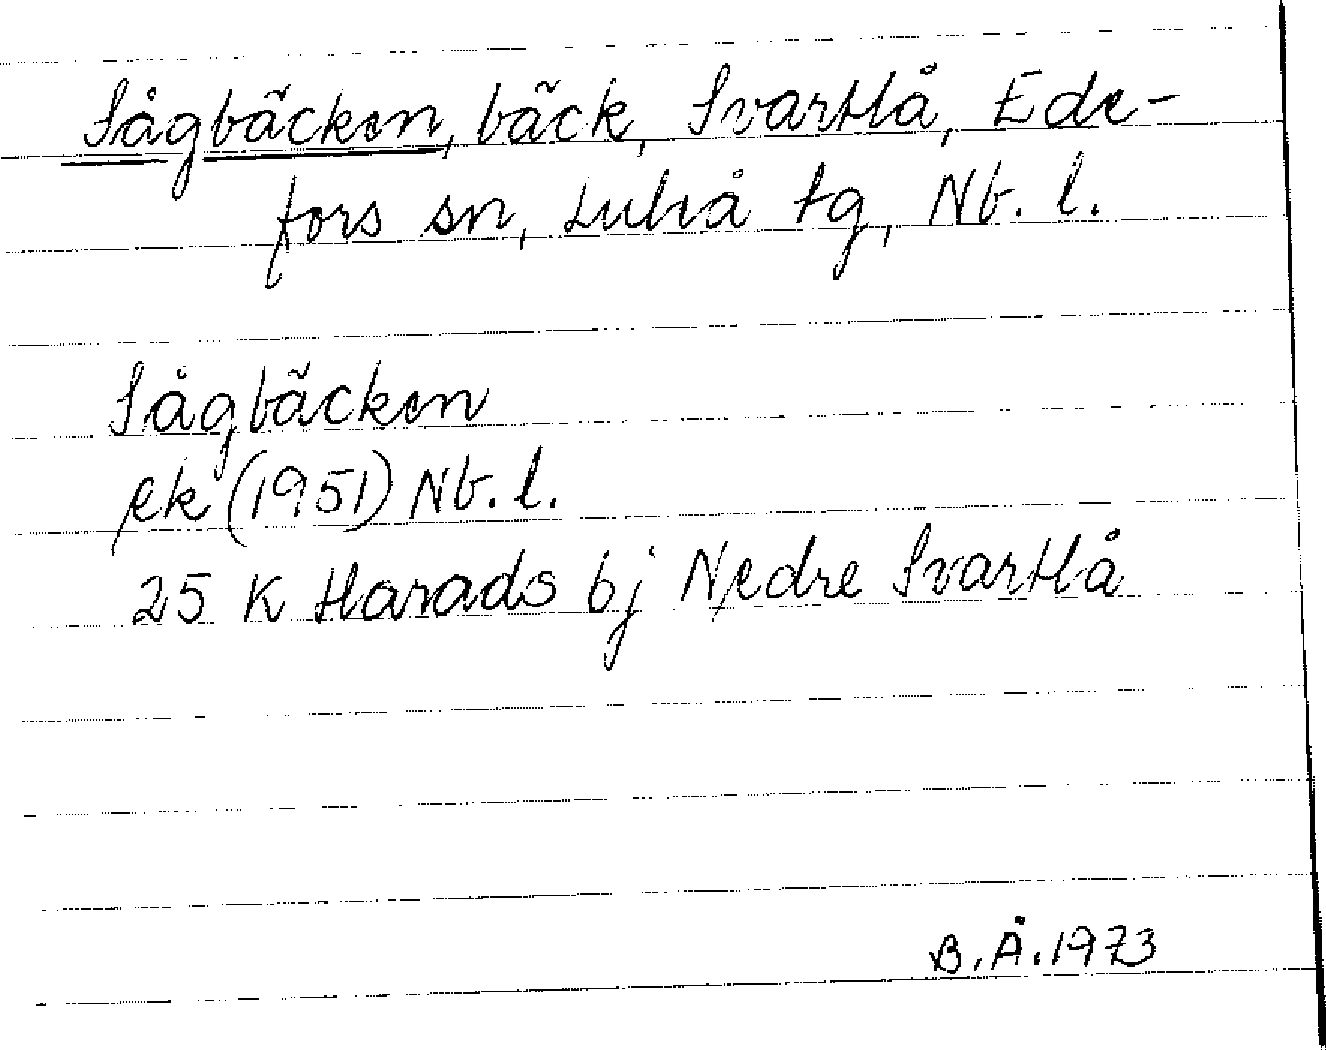 Sågbäcken, bäck, Svartlå, Ede-
fors sn, Luleå tg, Nb. l.
Sågbäcken
ek (1951) Nb. l.
25 K Harads bj Nedre Svartlå
B. Å. 1973